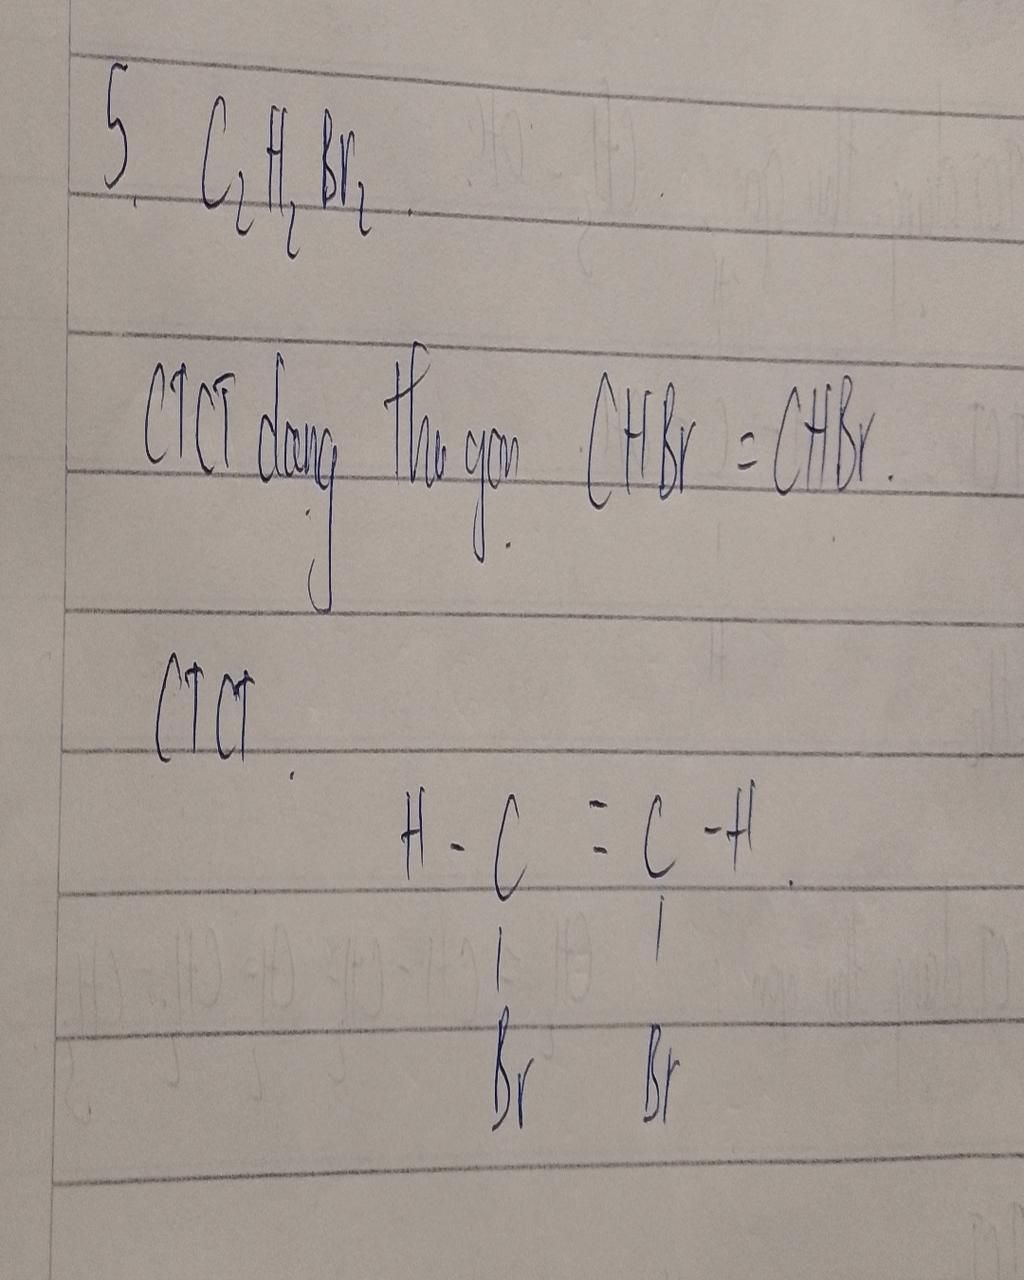 5. C₂H₂Br₂.
CTCT dạng thu gọn CHBr = CHBr.
CTCT.
H - C ≡ C - H.
| |
Br Br